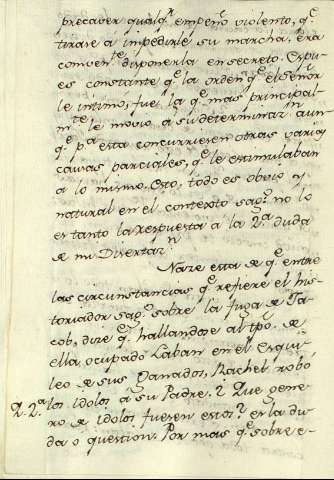 precaver qualqr. empeño violento, qe.
tirase a impedirle su marcha, era
convente. disponerla en secreto. Expu-
es constante qe. la orden qe. el Señor
le intimó, fue la qe. mas principal-
mte. le movio a su determinacn. aun
qe. pa. esta concurriesen otras varias
causas parciales, qe. le estimulaban
a lo mismo. Esto, todo es obvio y
natural en el contexto sagdo. no lo
es tanto la respuesta a la 2.a duda
de mi Disertan.
Naze esta de qe. entre
las circunstancias qe. refiere el his-
toriador sagdo. sobre la fuga de Ja-
cob, dize qe. hallandose al tpo. de
ella ocupado Laban en el esqui-
leo de sus Ganados, Rachel robó
2.2.a los idolos a su Padre. ? Que gene-
ro de idolos fuesen estos? es la du-
da o question. Por mas qe. sobre e-